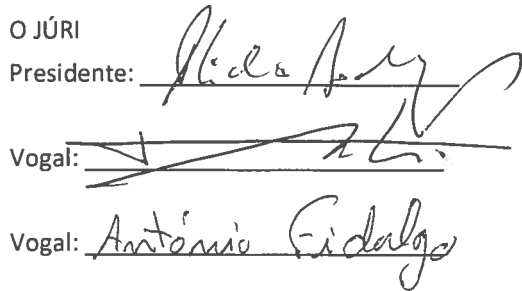 O JÚRI
Presidente:
Vogal:
Vogal: António Fidalgo